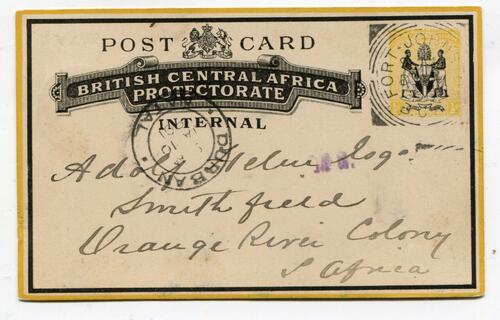 POST CARD
BRITISH CENTRAL AFRICA
PROTECTORATE
INTERNAL
FORT-JOHNS
B.C.
DURBAN
NATAL
Esqr
Smithfield
Orange River Colony
S Africa